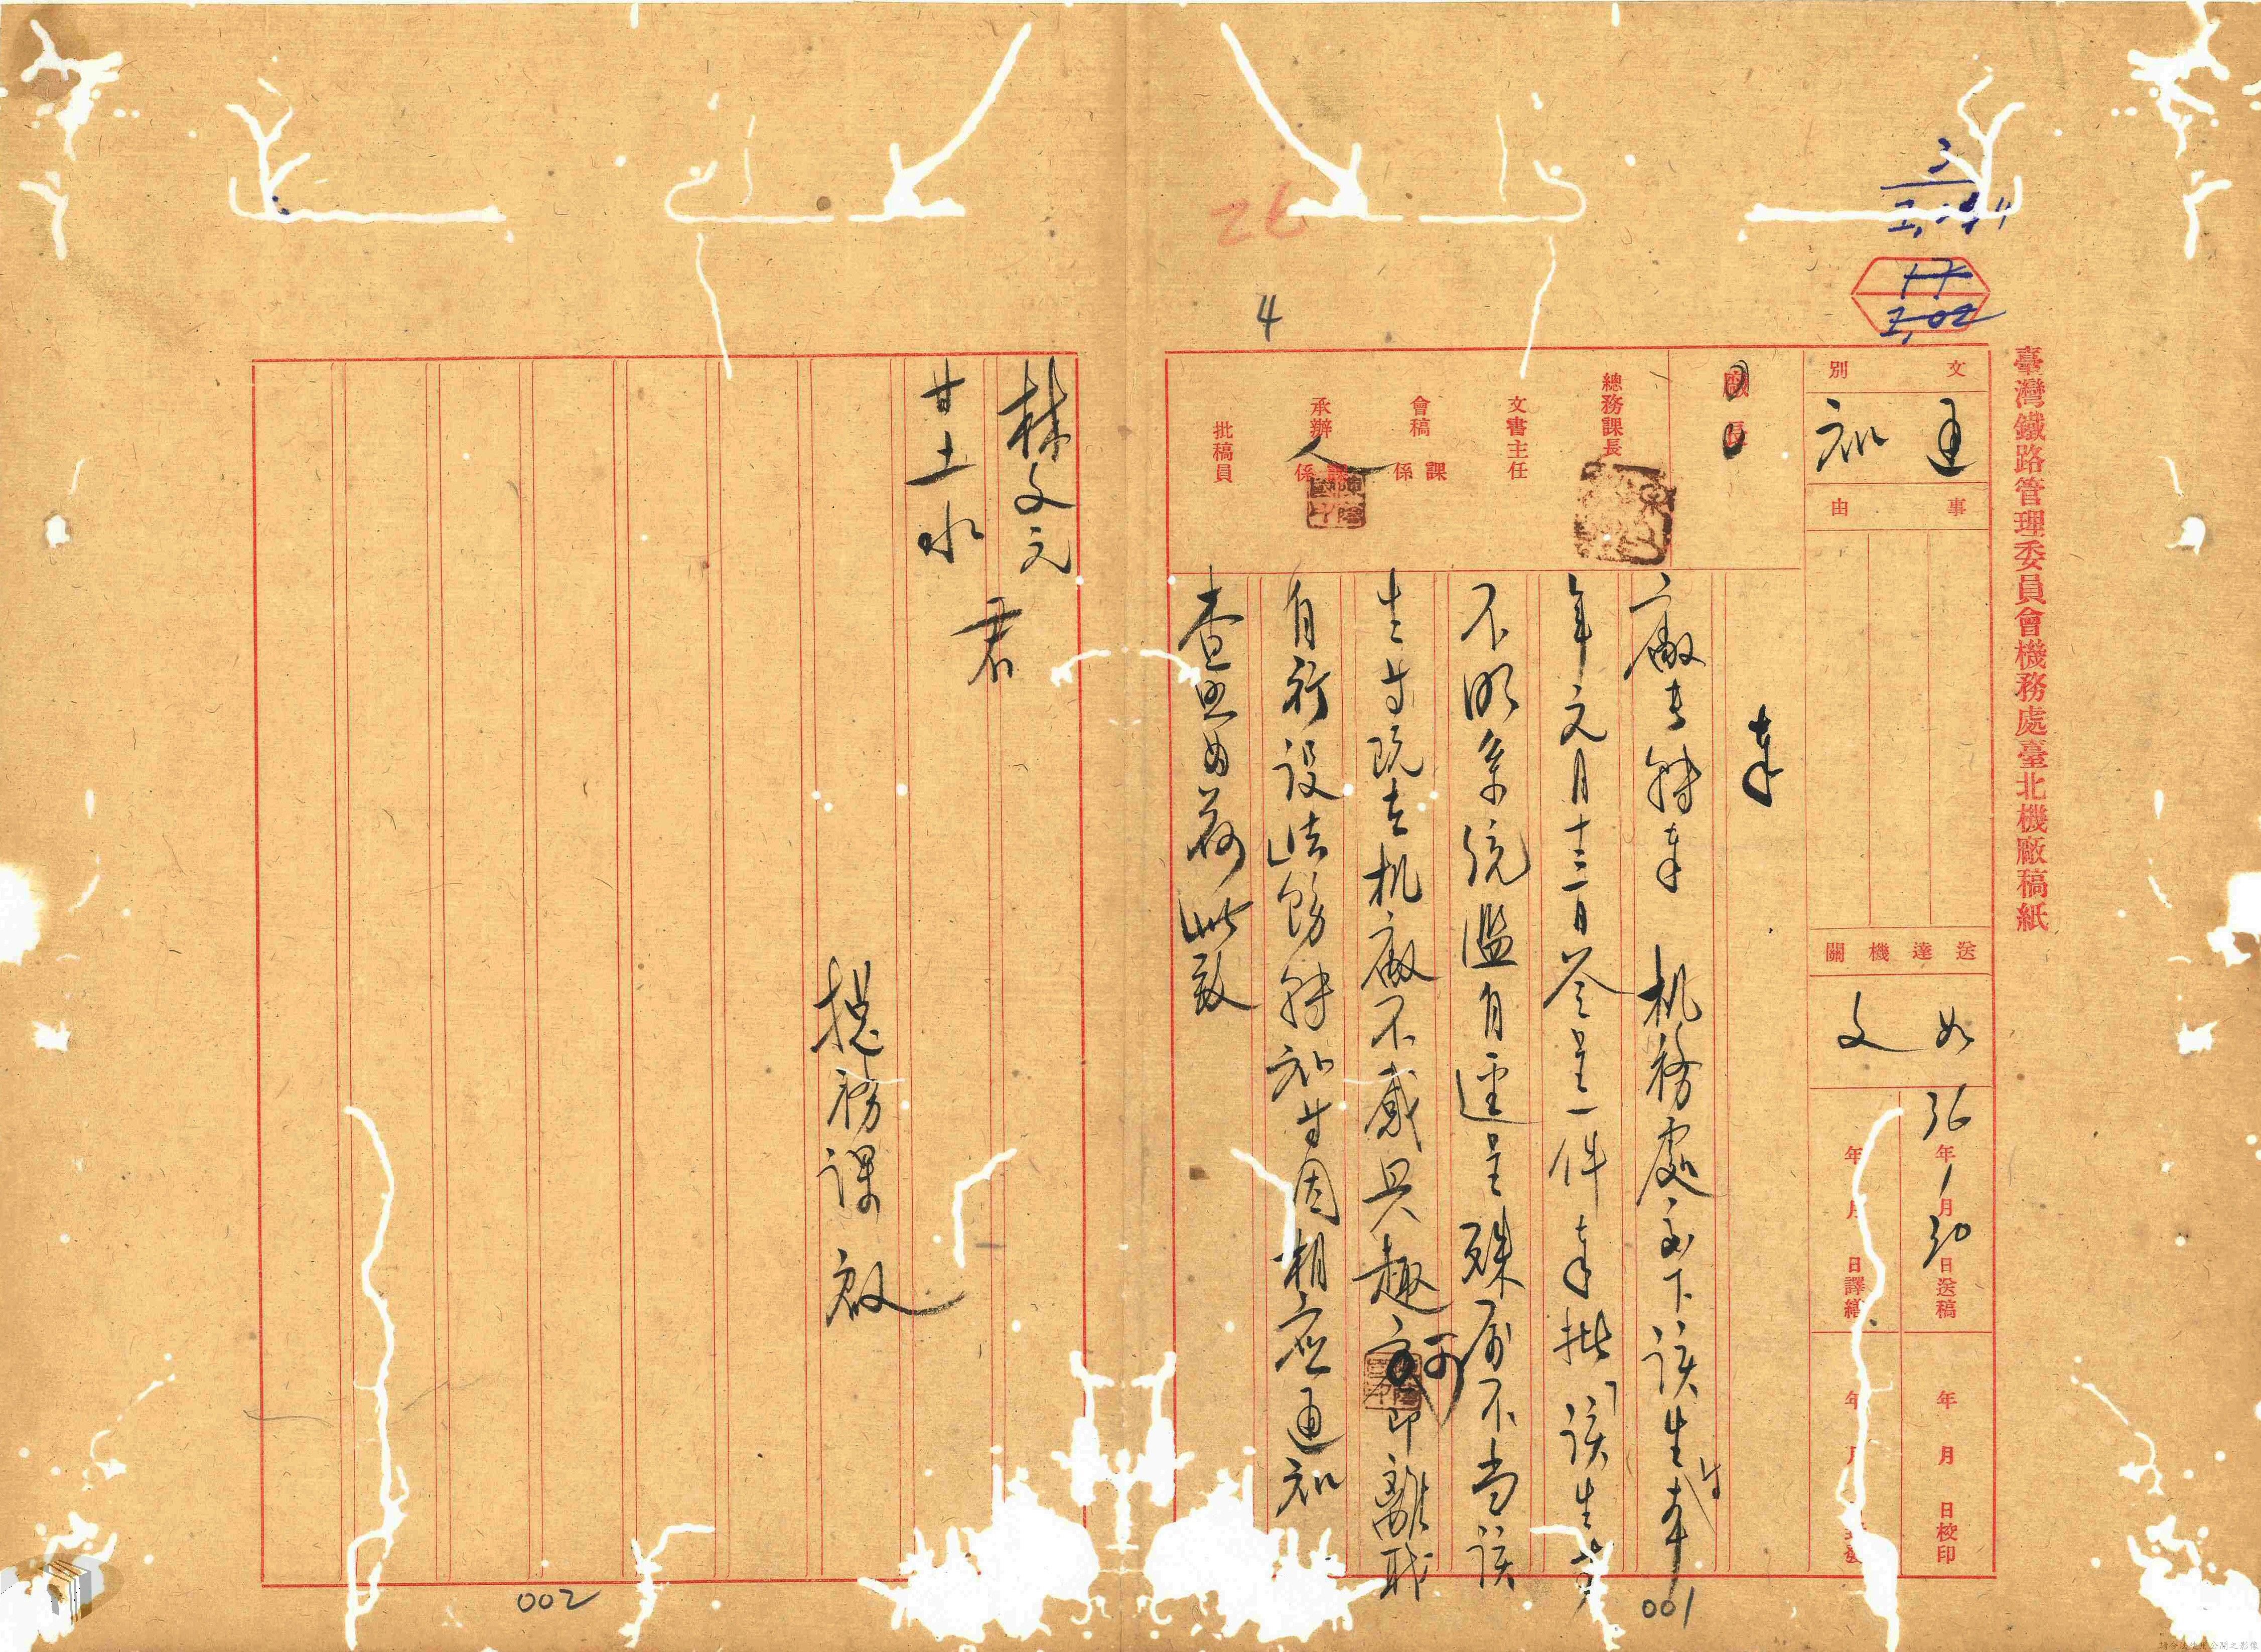 臺灣鐵路管理委員會機務處臺北機廠稿紙
三
17
26
4
文別
通知
事由
送達機關
如文
36年1月30日送稿
年月日校印
年月日譯繕
年月
廠長
總務課長
文書主任
會稿 課 係
承辦人 課 係
批稿員
奉
廠長轉奉 机務處交下該生等本
年元月十三日簽呈一件奉批「該生等
不明系統濫自逕呈殊屬不當該
生等既在机廠不感興趣可即離職
自行設法飭轉知等因相應通知
查照為荷此致
林文元
甘土水
君
總務課啟
001
002